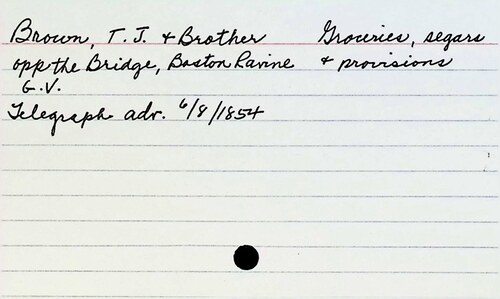 Brown, T. J. + Brother Groceries, segars
opp the Bridge, Boston Ravine + provisions
G.V.
Telegraph adv. 6/8/1854